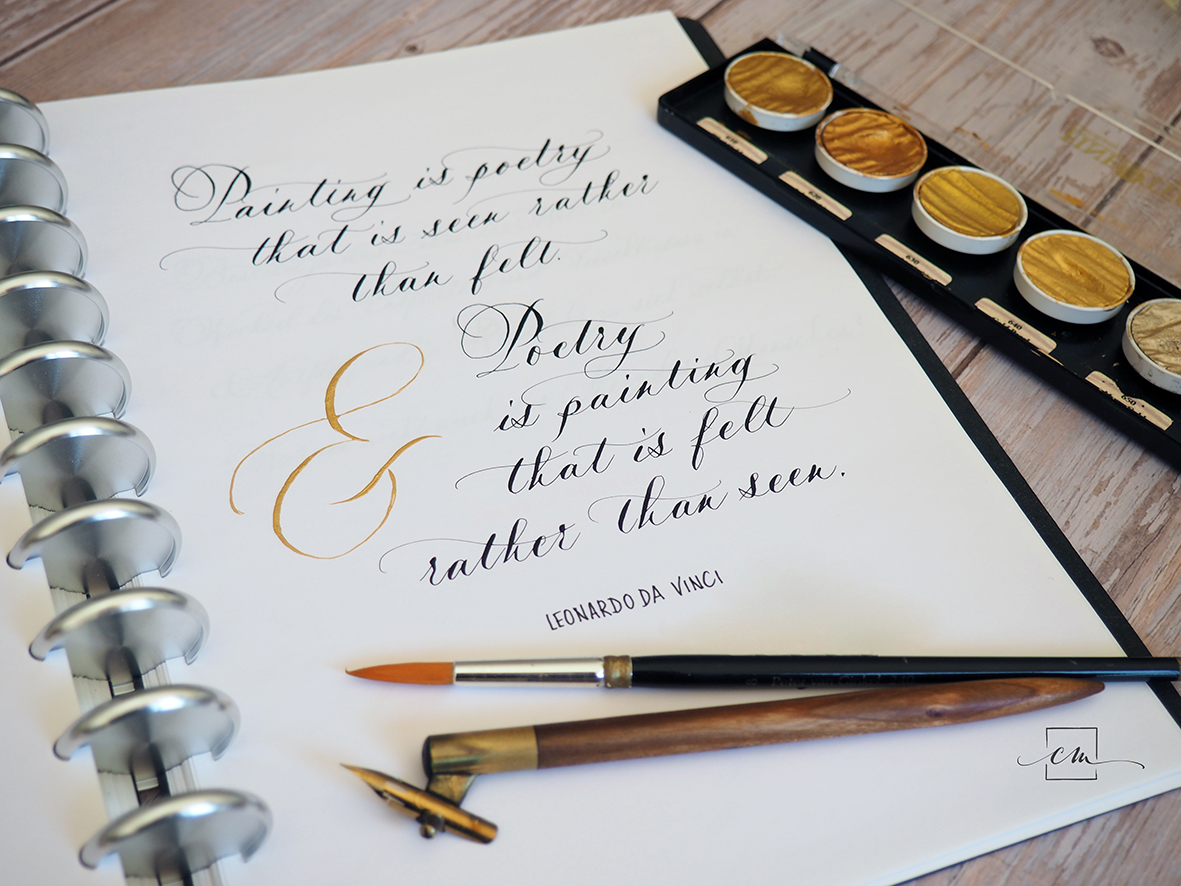 Painting is poetry
that is seen rather
than felt.
&
Poetry
is painting
that is felt
rather than seen.
LEONARDO DA VINCI
630
640
650
cm